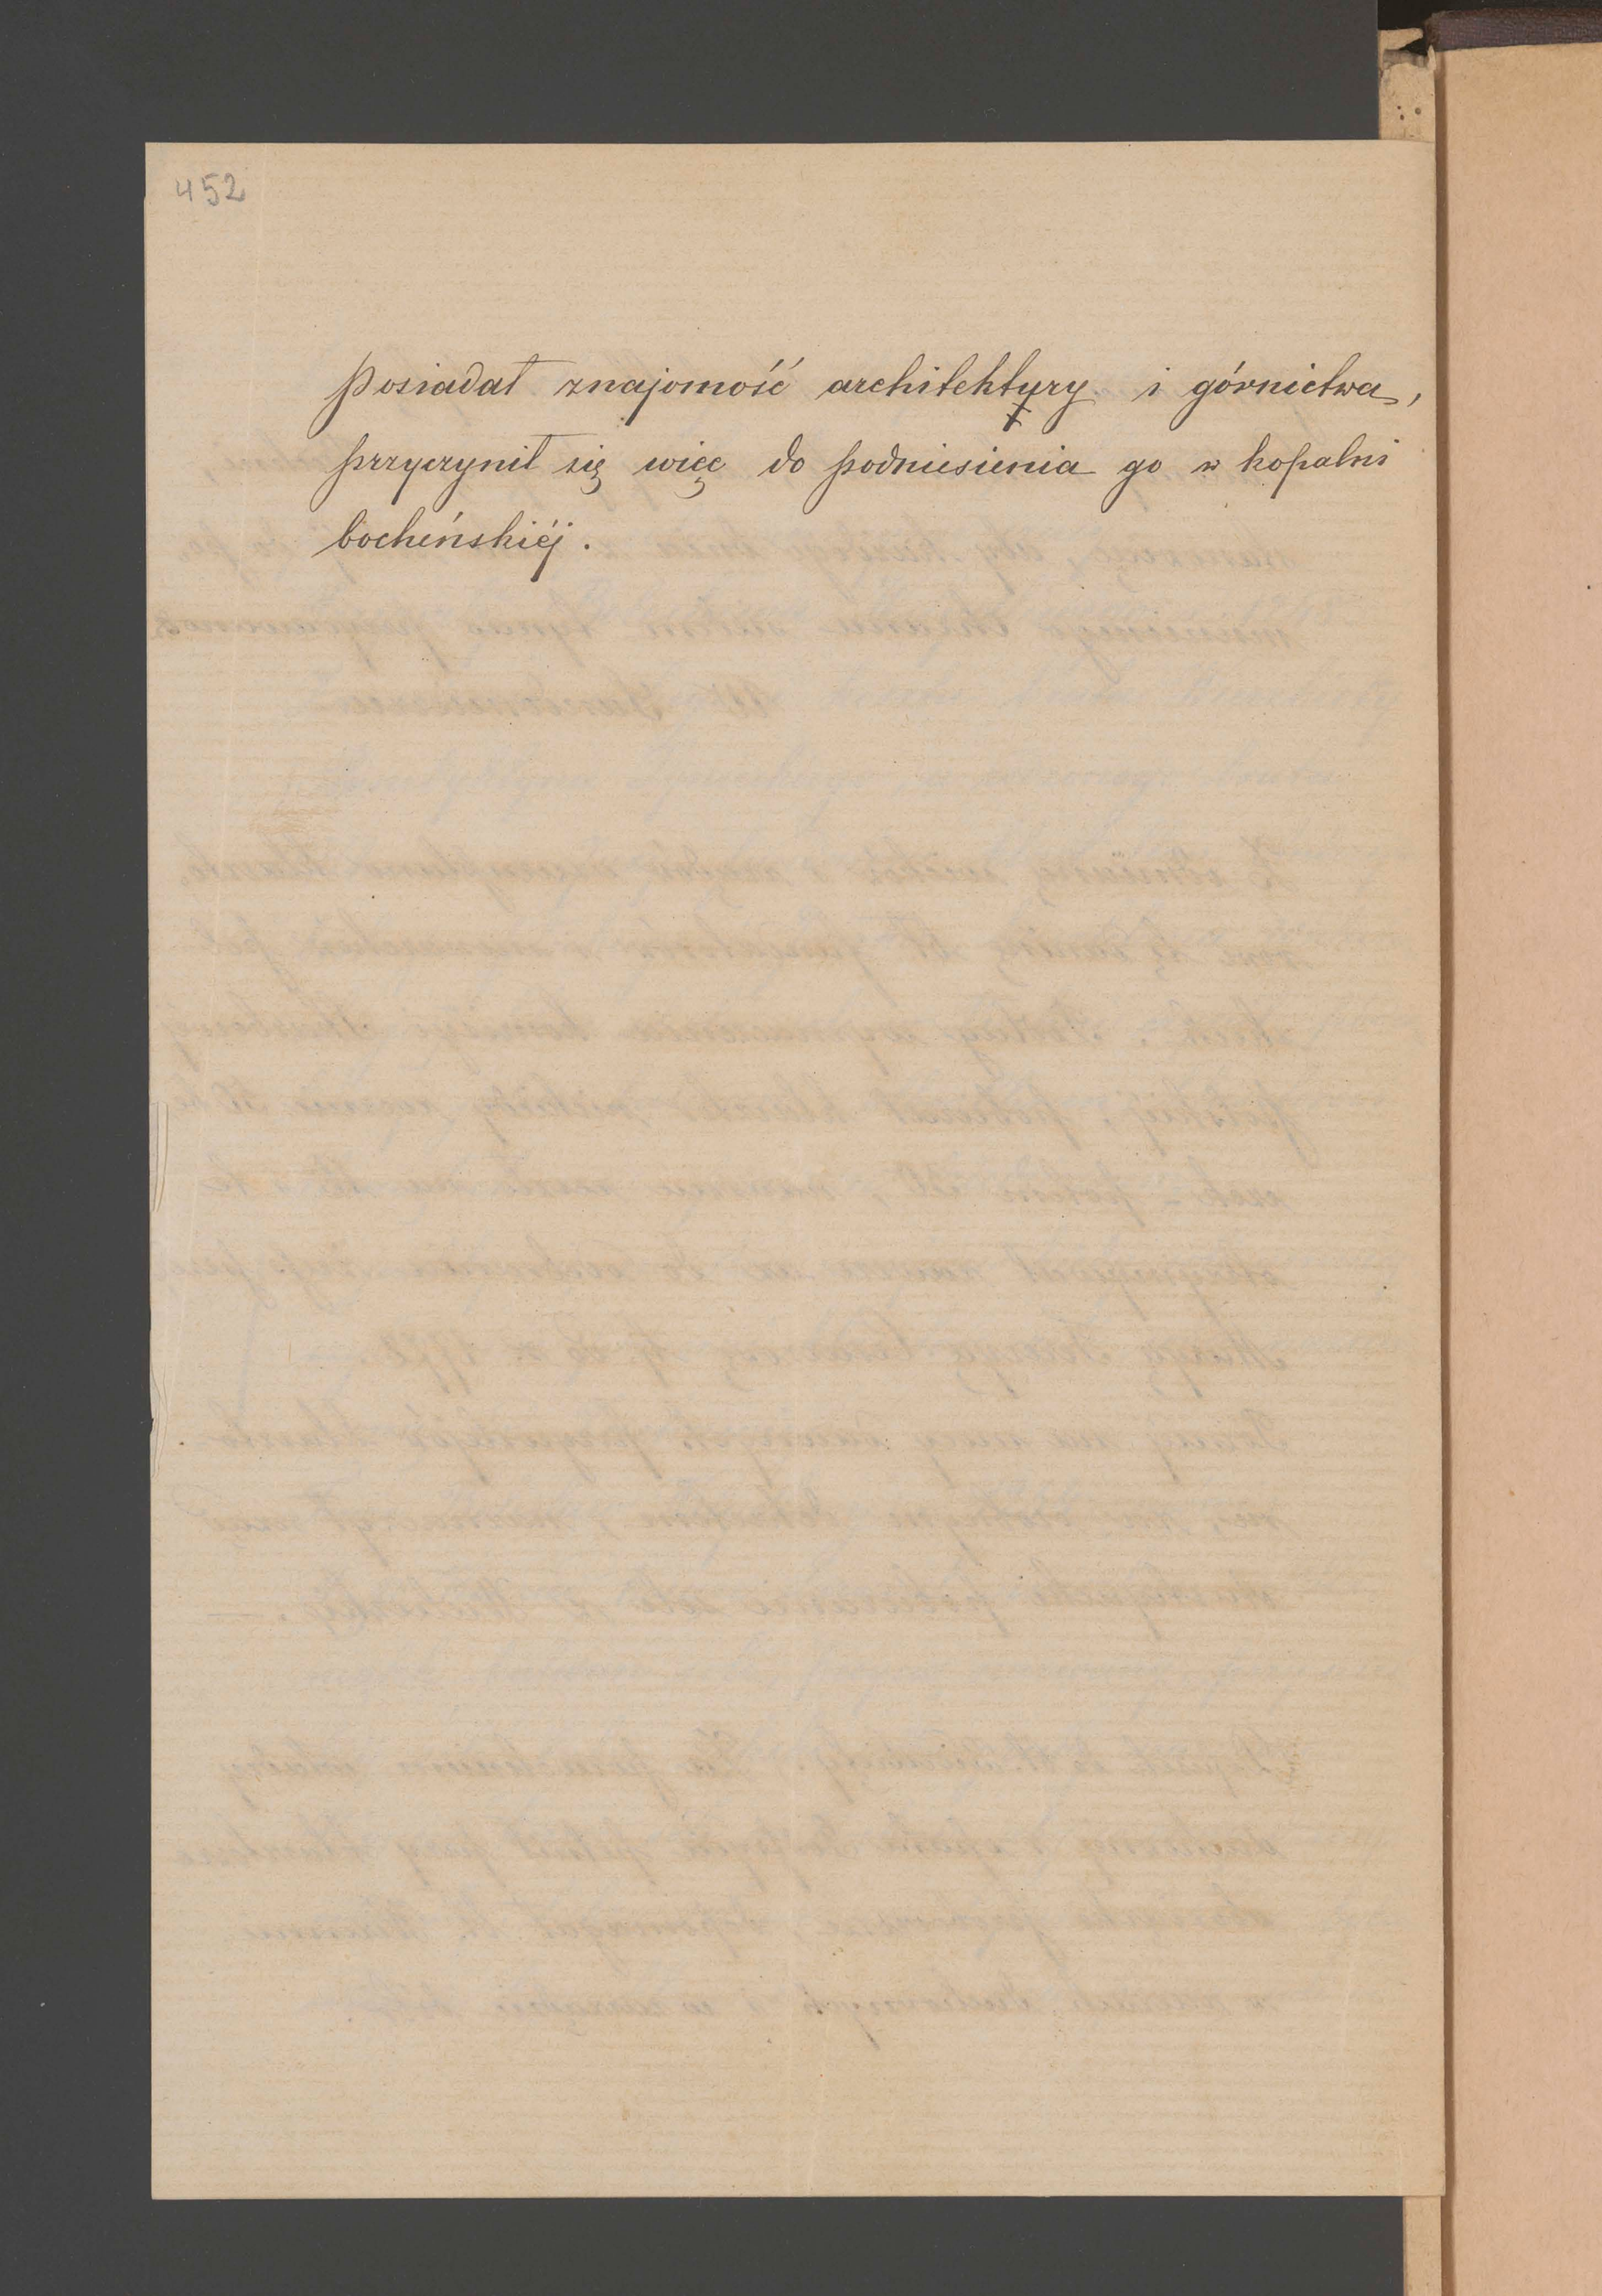 452
posiadał znajomość architektury i górnictwa,
przyczynił się więc do podniesienia go w kopalni
bocheńskiéj.